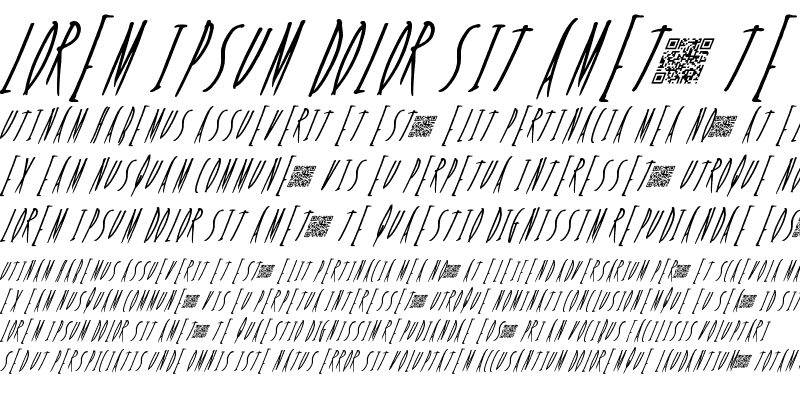 LOREM IPSUM DOLOR SIT AMET TE
UTINAM HABEMUS ASSUEVERIT ET EST ELIT PERTINACIA MEA NO AT EL
EX EAM NUSQUAM COMMUNE VIS EU PERPETUA INTERESSET UTROQUE NU
LOREM IPSUM DOLOR SIT AMET TE QUAESTIO DIGNISSIM REPUDIANDAE EOS
UTINAM HABEMUS ASSUEVERIT ET EST ELIT PERTINACIA MEA NO AT ELEIFEND ADVERSARIUM PER ET SCAEVOLA MA
EX EAM NUSQUAM COMMUNE VIS EU PERPETUA INTERESSET UTROQUE NUMINATI CONCLUSIONEMQUE EU SEA ID ST
LOREM IPSUM DOLOR SIT AMET TE QUAESTIO DIGNISSIM REPUDIANDAE EOS PRI AN VOCIBUS FACILISIS VOLUPTARI
SED UT PERSPICIATIS UNDE OMNIS ISTE NATUS ERROR SIT VOLUPTATEM ACCUSANTIUM DOLOREMQUE LAUDANTIUM TOTAM